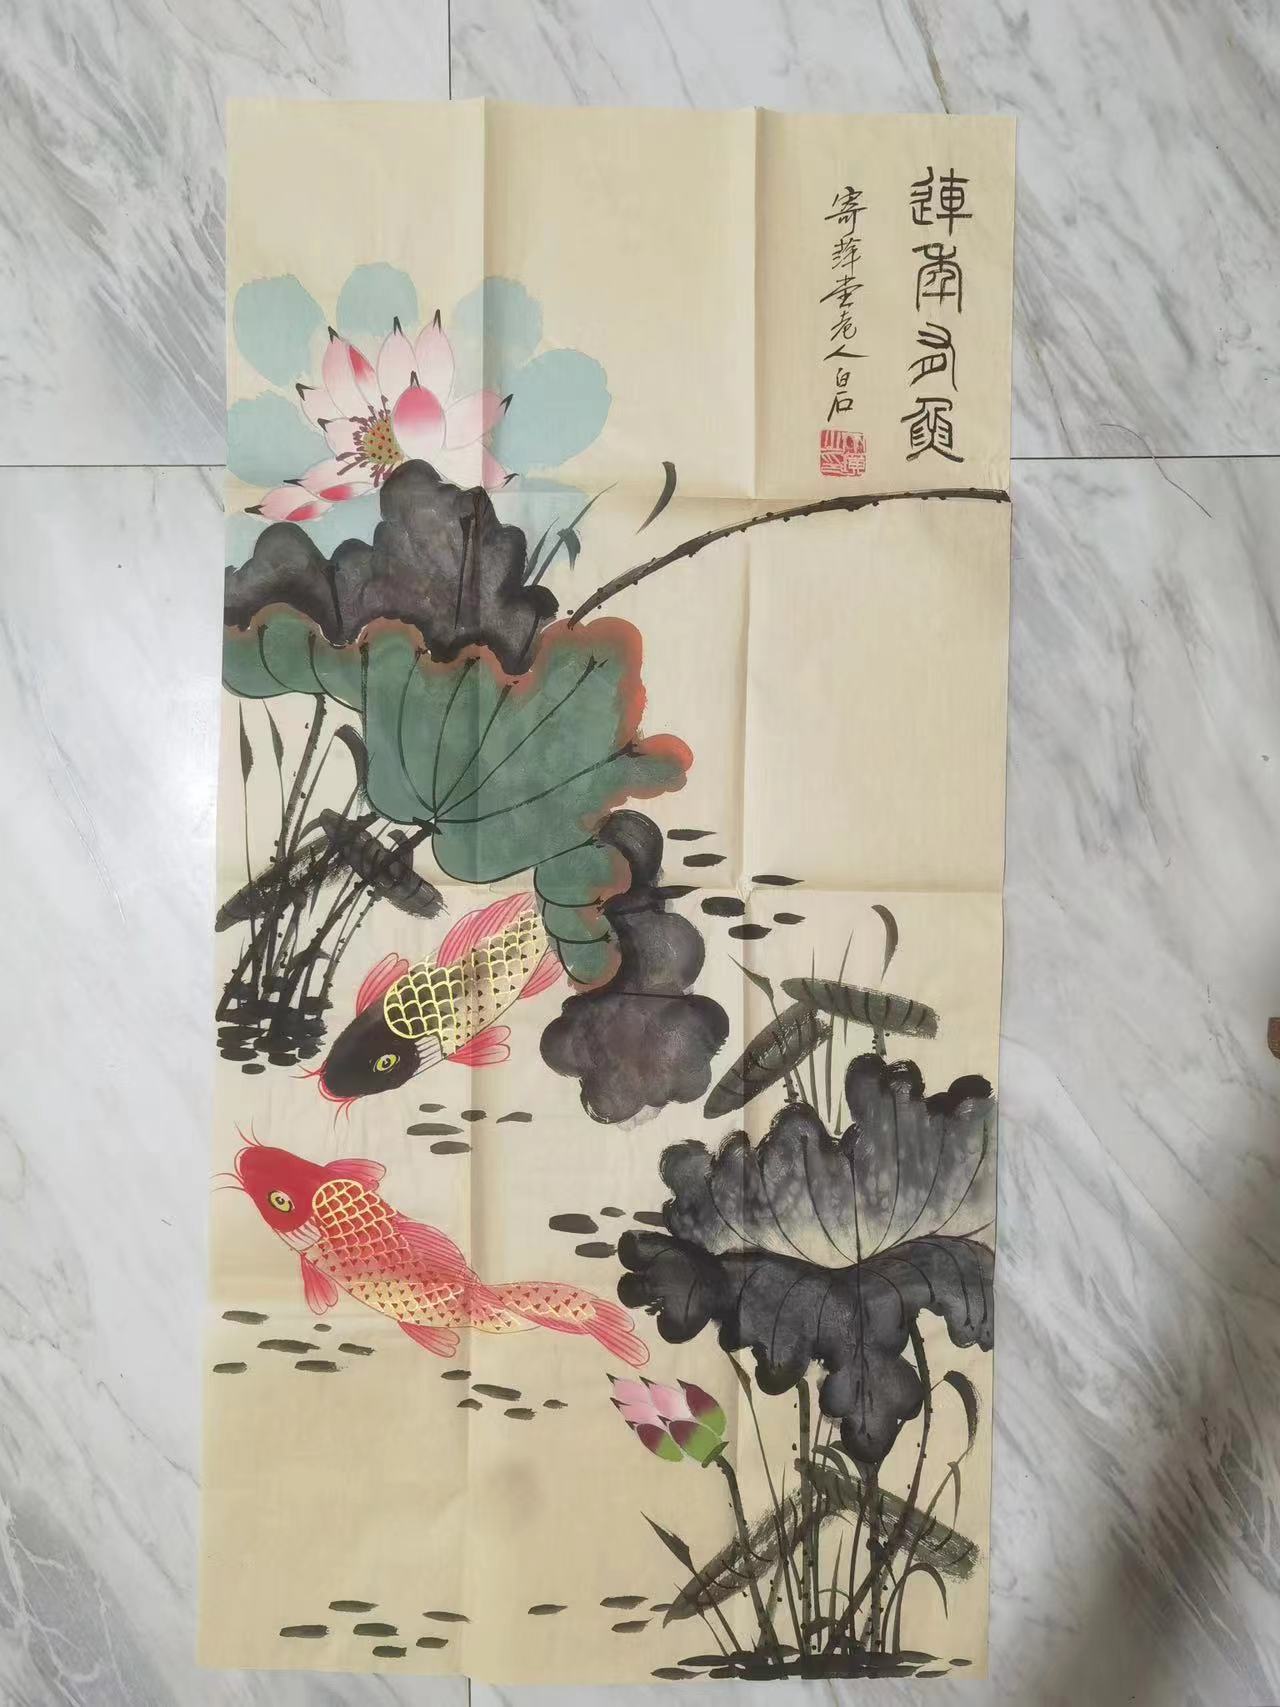 連年有魚
寄萍堂老人白石